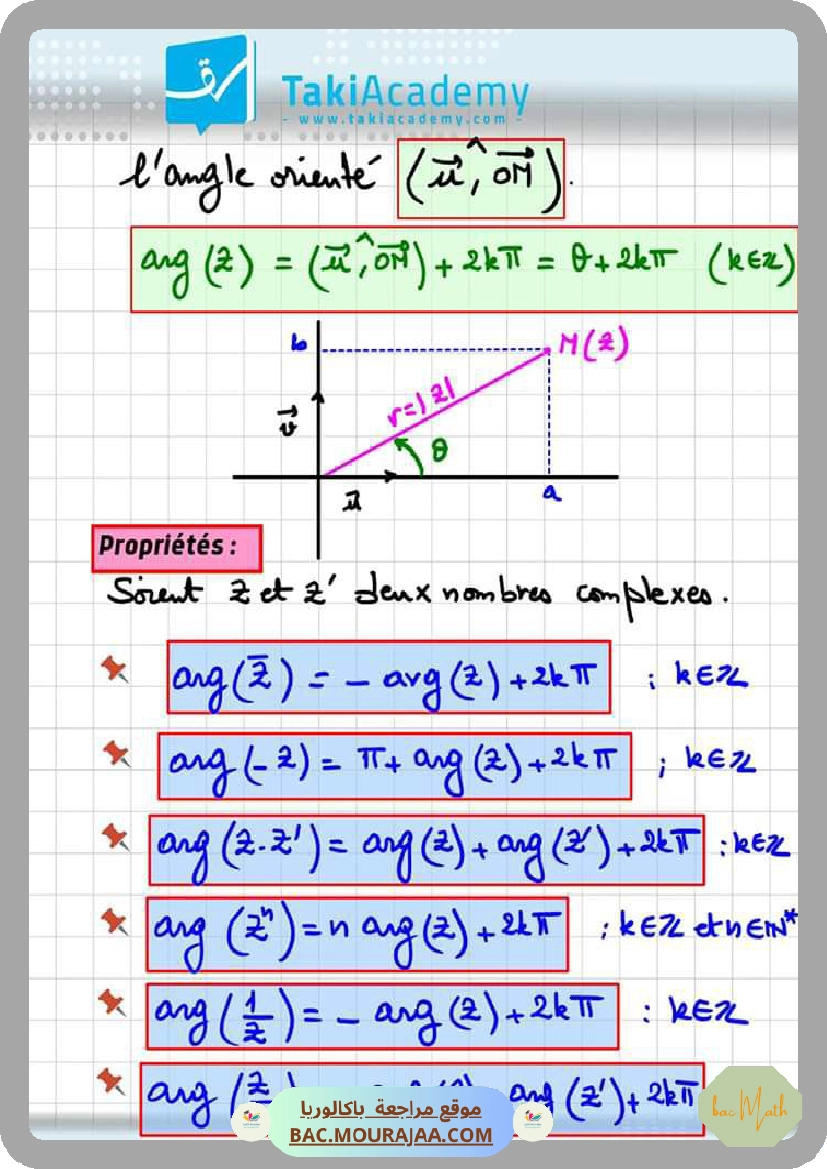 TakiAcademy
- www.takiacademy.com -
l'angle orienté (u⃗,^ OM⃗).
arg (z) = (u⃗,^ OM⃗) + 2kπ = θ + 2kπ (k∈ℤ)
b
M(z)
r=|z|
v⃗
θ
u⃗
a
Propriétés :
Soient z et z' deux nombres complexes.
arg(z̄) = - arg(z) + 2kπ ; k∈ℤ
arg(-z) = π + arg(z) + 2kπ ; k∈ℤ
arg(z.z') = arg(z) + arg(z') + 2kπ : k∈ℤ
arg (zⁿ) = n arg(z) + 2kπ ; k∈ℤ et n∈IN*
arg(1/z) = - arg(z) + 2kπ : k∈ℤ
arg (z/ arg (z') + 2kπ
bac Math
موقع مراجعة باكالوريا
BAC.MOURAJAA.COM